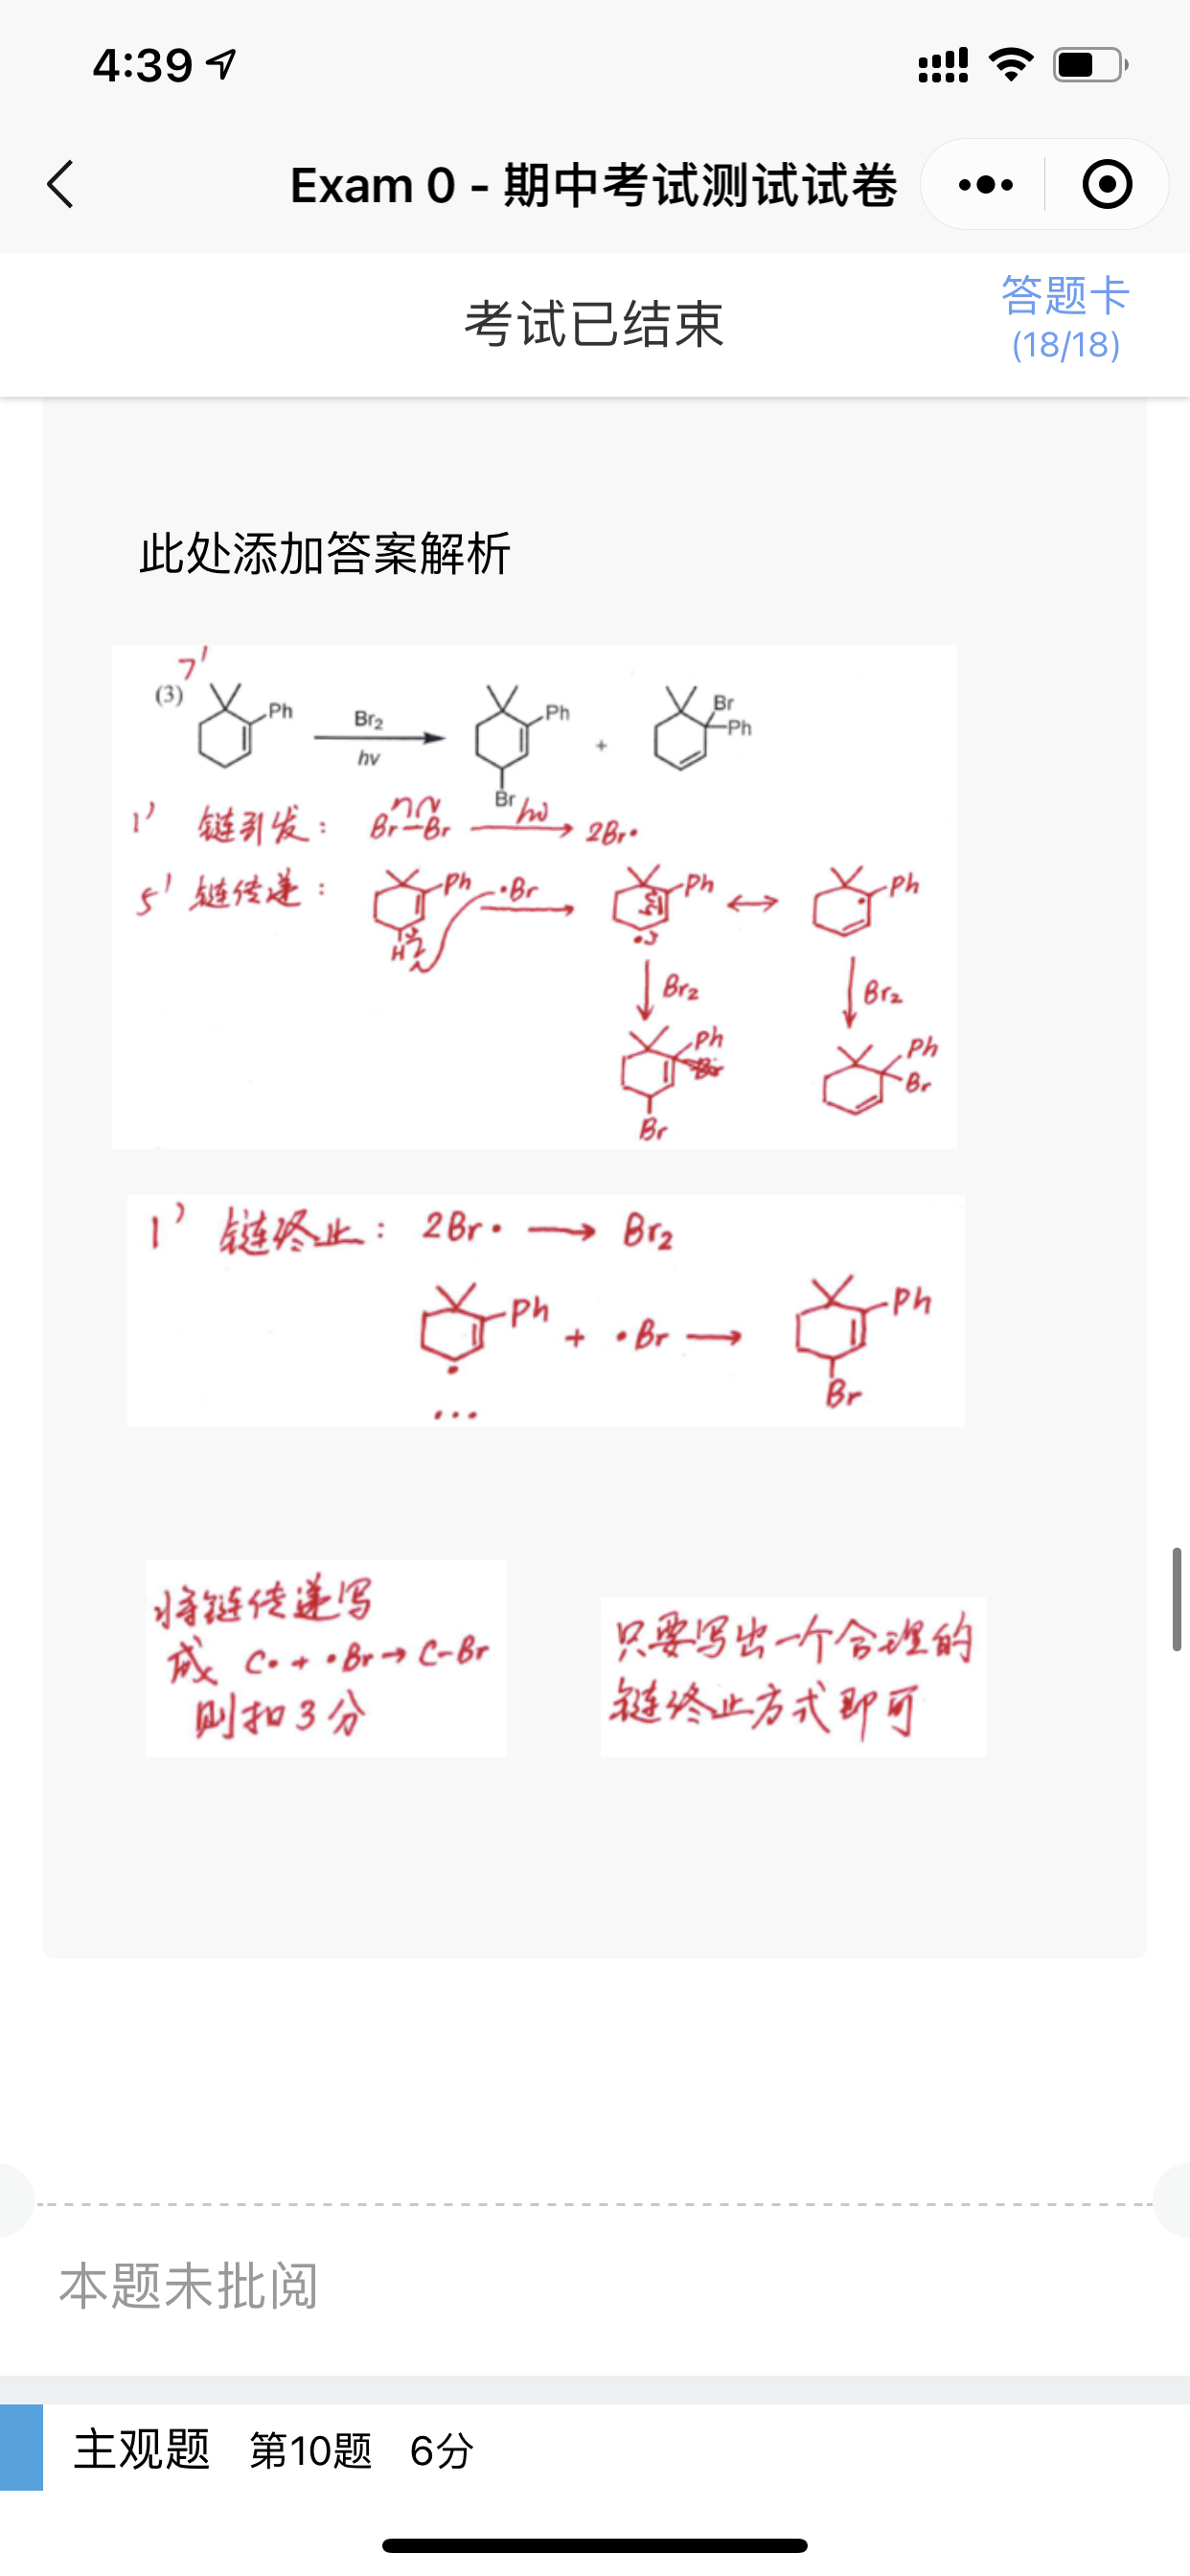 4:39
Exam 0 - 期中考试测试试卷
考试已结束
答题卡
(18/18)
此处添加答案解析
7'
(3) Ph Br₂ hν Ph Br + Br Ph
1' 链引发: Br-Br hν 2Br•
5' 链传递: Ph •Br Ph ↔ Ph
H
Br₂ Br₂
Ph Ph
Br
Br
1' 链终止: 2Br• → Br₂
Ph + •Br → Ph
Br
...
将链传递写
成 C• + •Br → C-Br
则扣3分
只要写出一个合理的
链终止方式即可
本题未批阅
主观题 第10题 6分